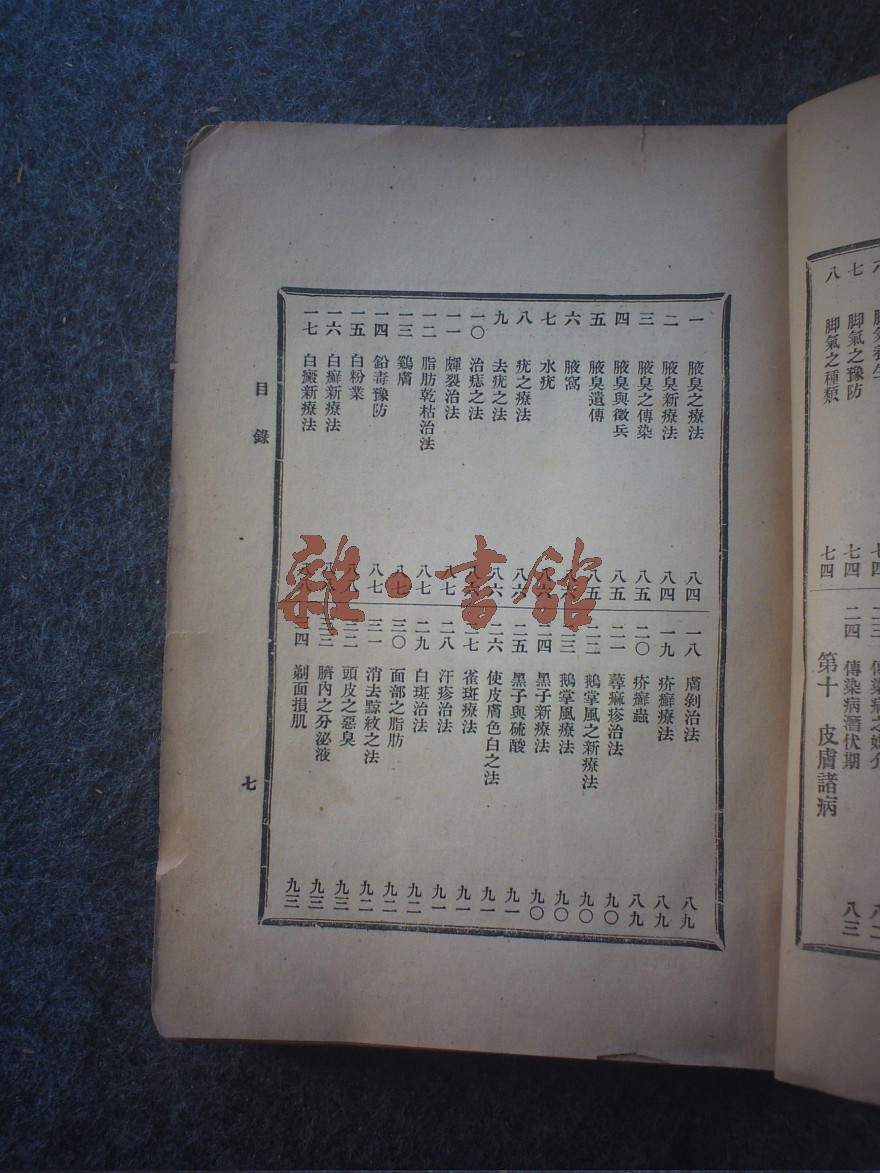 七 脚氣之豫防 七四
八 脚氣之種類 七四
二三 傳染病之媒介 八二
二四 傳染病潛伏期 八三
第十 皮膚諸病
一 腋臭之療法 八四
二 腋臭新療法 八四
三 腋臭之傳染 八五
四 腋臭與徵兵 八五
五 腋臭遺傳 八五
六 腋窩 八六
七 水疣 八六
八 疣之療法 八六
九 去疣之法 八六
一〇 治痣之法 八六
一一 裂治法 八七
一二 脂肪乾枯治法 八七
一三 鷄膚 八七
一四 鉛毒豫防 八七
一五 白粉業 八八
一六 白癬新療法 八八
一七 白癜新療法 八八
一八 膚剝治法 八九
一九 疥癬療法 八九
二〇 疥癬蟲 八九
二一 蕁麻疹治法 九〇
二二 鵝掌風之新療法 九〇
二三 鵝掌風療法 九〇
二四 黑子新療法 九〇
二五 黑子與硫酸 九一
二六 使皮膚色白之法 九一
二七 雀斑療法 九一
二八 汗疹治法 九一
二九 白斑治法 九二
三〇 面部之脂肪 九二
三一 消去黥紋之法 九二
三二 頭皮之惡臭 九三
三三 臍內之分泌液 九三
三四 剃面損肌 九三
目錄
七
雜·書館